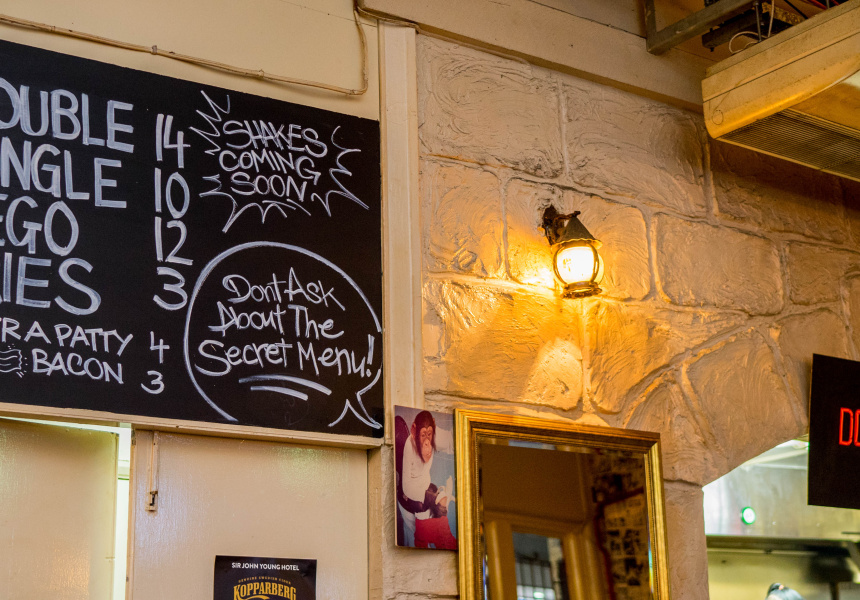 OUBLE 14
NGLE 10
EGO 12
IES 3
RA PATTY 4
BACON 3
SHAKES
COMING
SOON
Dont Ask
About The
Secret Menu!
SIR JOHN YOUNG HOTEL
KOPPARBERG
DO